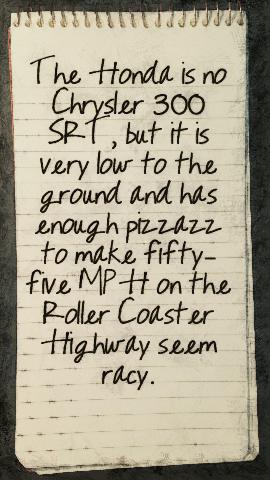 The Honda is no
Chrysler 300
SRT, but it is
very low to the
ground and has
enough pizzazz
to make fifty-
five MPH on the
Roller Coaster
Highway seem
racy.